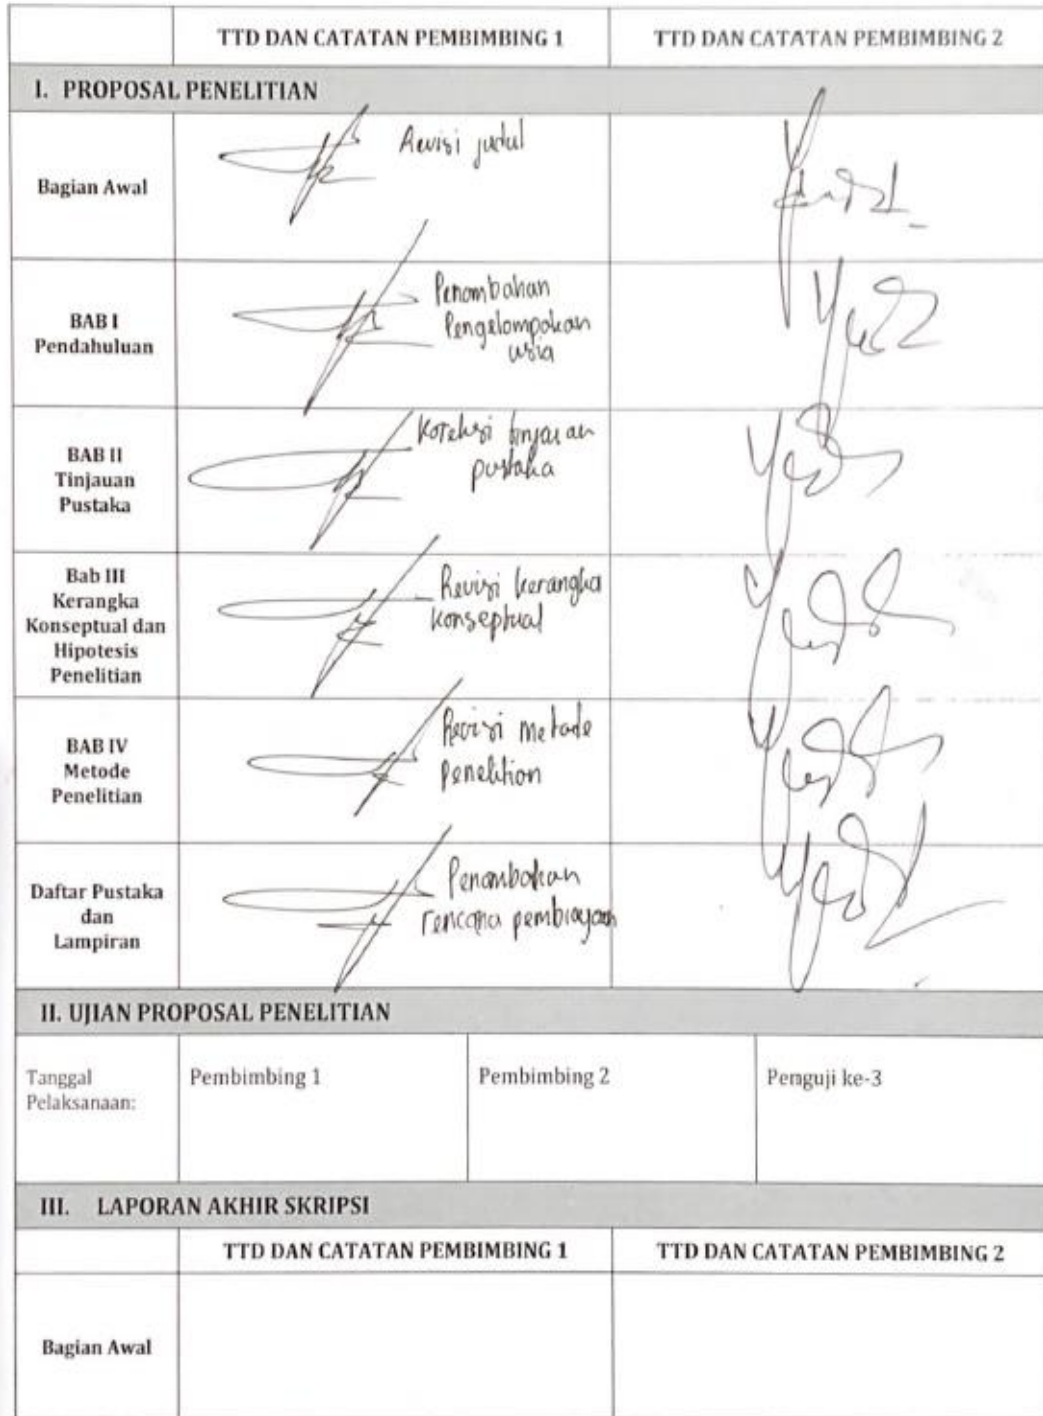 TTD DAN CATATAN PEMBIMBING 1
TTD DAN CATATAN PEMBIMBING 2
I. PROPOSAL PENELITIAN
Bagian Awal
Revisi judul
BAB I
Pendahuluan
Penambahan
Pengelompokan
usia
BAB II
Tinjauan
Pustaka
Koreksi tinjauan
pustaka
Bab III
Kerangka
Konseptual dan
Hipotesis
Penelitian
Revisi kerangka
konseptual
BAB IV
Metode
Penelitian
Revisi Metode
Penelitian
Daftar Pustaka
dan
Lampiran
Penambahan
rencana pembiayaan
II. UJIAN PROPOSAL PENELITIAN
Tanggal
Pelaksanaan:
Pembimbing 1
Pembimbing 2
Penguji ke-3
III. LAPORAN AKHIR SKRIPSI
TTD DAN CATATAN PEMBIMBING 1
TTD DAN CATATAN PEMBIMBING 2
Bagian Awal